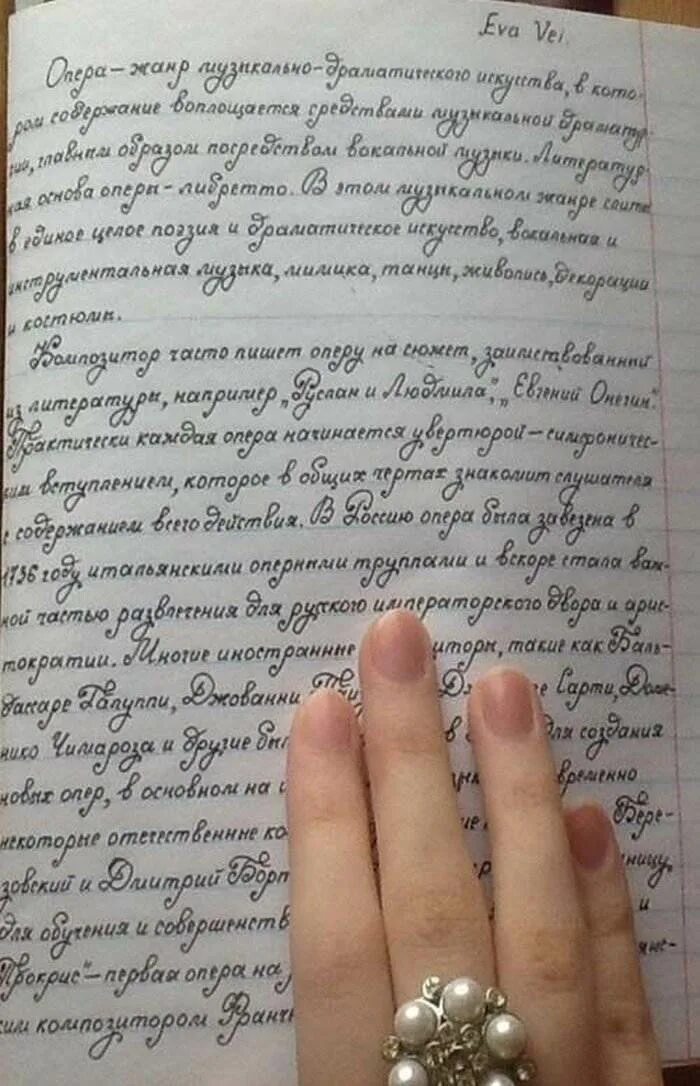 Eva Vei.
Опера – жанр музыкально-драматического искусства, в кото-
ром содержание воплощается средствами музыкальной драматур-
гии, главным образом посредством вокальной музыки. Литератур-
ная основа оперы – либретто. В этом музыкальном жанре слиты
в единое целое поэзия и драматическое искусство, вокальная и
инструментальная музыка, мимика, танцы, живопись, декорации
и костюмы.
Композитор часто пишет оперу на сюжет, заимствованный
из литературы, например „Руслан и Людмила", „Евгений Онегин".
Практически каждая опера начинается увертюрой – симфоничес-
ким вступлением, которое в общих чертах знакомит слушателя
с содержанием всего действия. В Россию опера была завезена в
1736 году итальянскими оперными труппами и вскоре стала важ-
ной частью развлечения для русского императорского двора и арис-
тократии. Многие иностранные иторы, такие как Баль-
дассаре Галуппи, Джованни Сарти, Доме-
нико Чимароза и другие бы в для создания
новых опер, в основном на временно
некоторые отечественные ко Бере-
зовский и Дмитрий Борт ницу,
для обучения и совершенств и
Прокрис" – первая опера на
ким композитором Франч